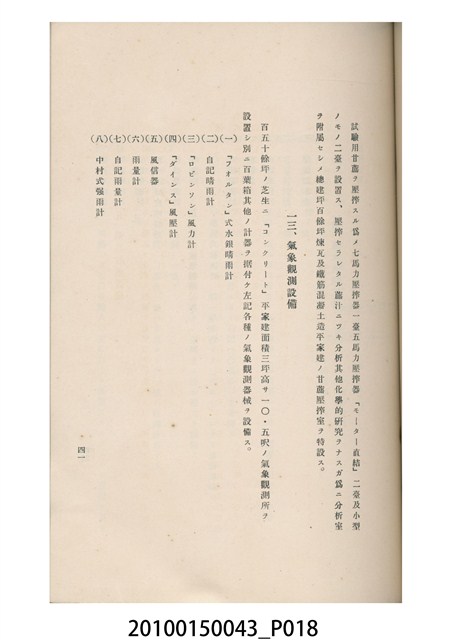 試驗用甘蔗ヲ壓搾スル爲メ七馬力壓搾器一臺五馬力壓搾器「モーター直結」二臺及小型
ノモノ二臺ヲ設置ス、壓搾セラレタル蔗汁ニツキ分析其他化學的硏究ヲナスガ爲ニ分析室
ヲ附屬セシメ總建坪百餘坪煉瓦及鐵筋混凝土造平家建ノ甘蔗壓搾室ヲ特設ス。
一三、氣象觀測設備
百五十餘坪ノ芝生ニ「コンクリート」平家建面積三坪高サ一〇・五呎ノ氣象觀測所ヲ
設置シ別ニ百葉箱其他ノ計器ヲ据付ケ左記各種ノ氣象觀測器械ヲ設備ス。
(一)「フオルタン」式水銀晴雨計
(二)自記晴雨計
(三)「ロビンソン」風力計
(四)「ダインス」風壓計
(五)風信器
(六)雨量計
(七)自記雨量計
(八)中村式强雨計
四一
20100150043_P018